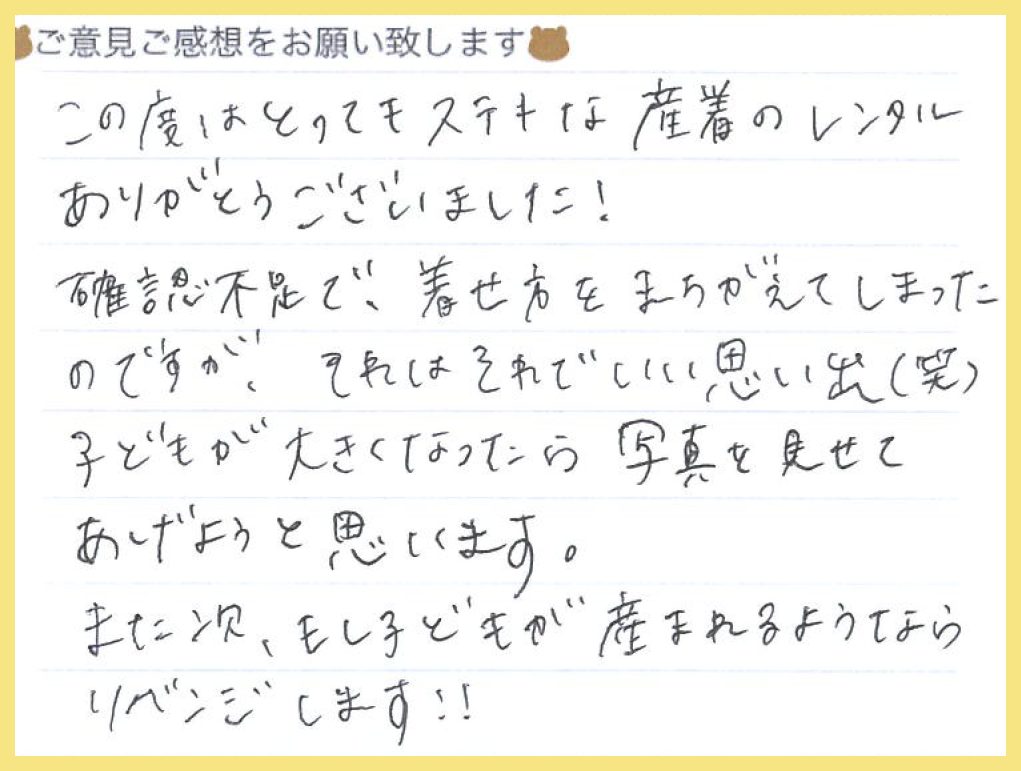 ご意見ご感想をお願い致します
この度はとってもステキな産着のレンタル
ありがとうございました!
確認不足で、着せ方をまちがえてしまった
のですが、それはそれでいい思い出(笑)
子どもが大きくなったら写真を見せて
あげようと思います。
また次、もし子どもが産まれるようなら
リベンジします!!